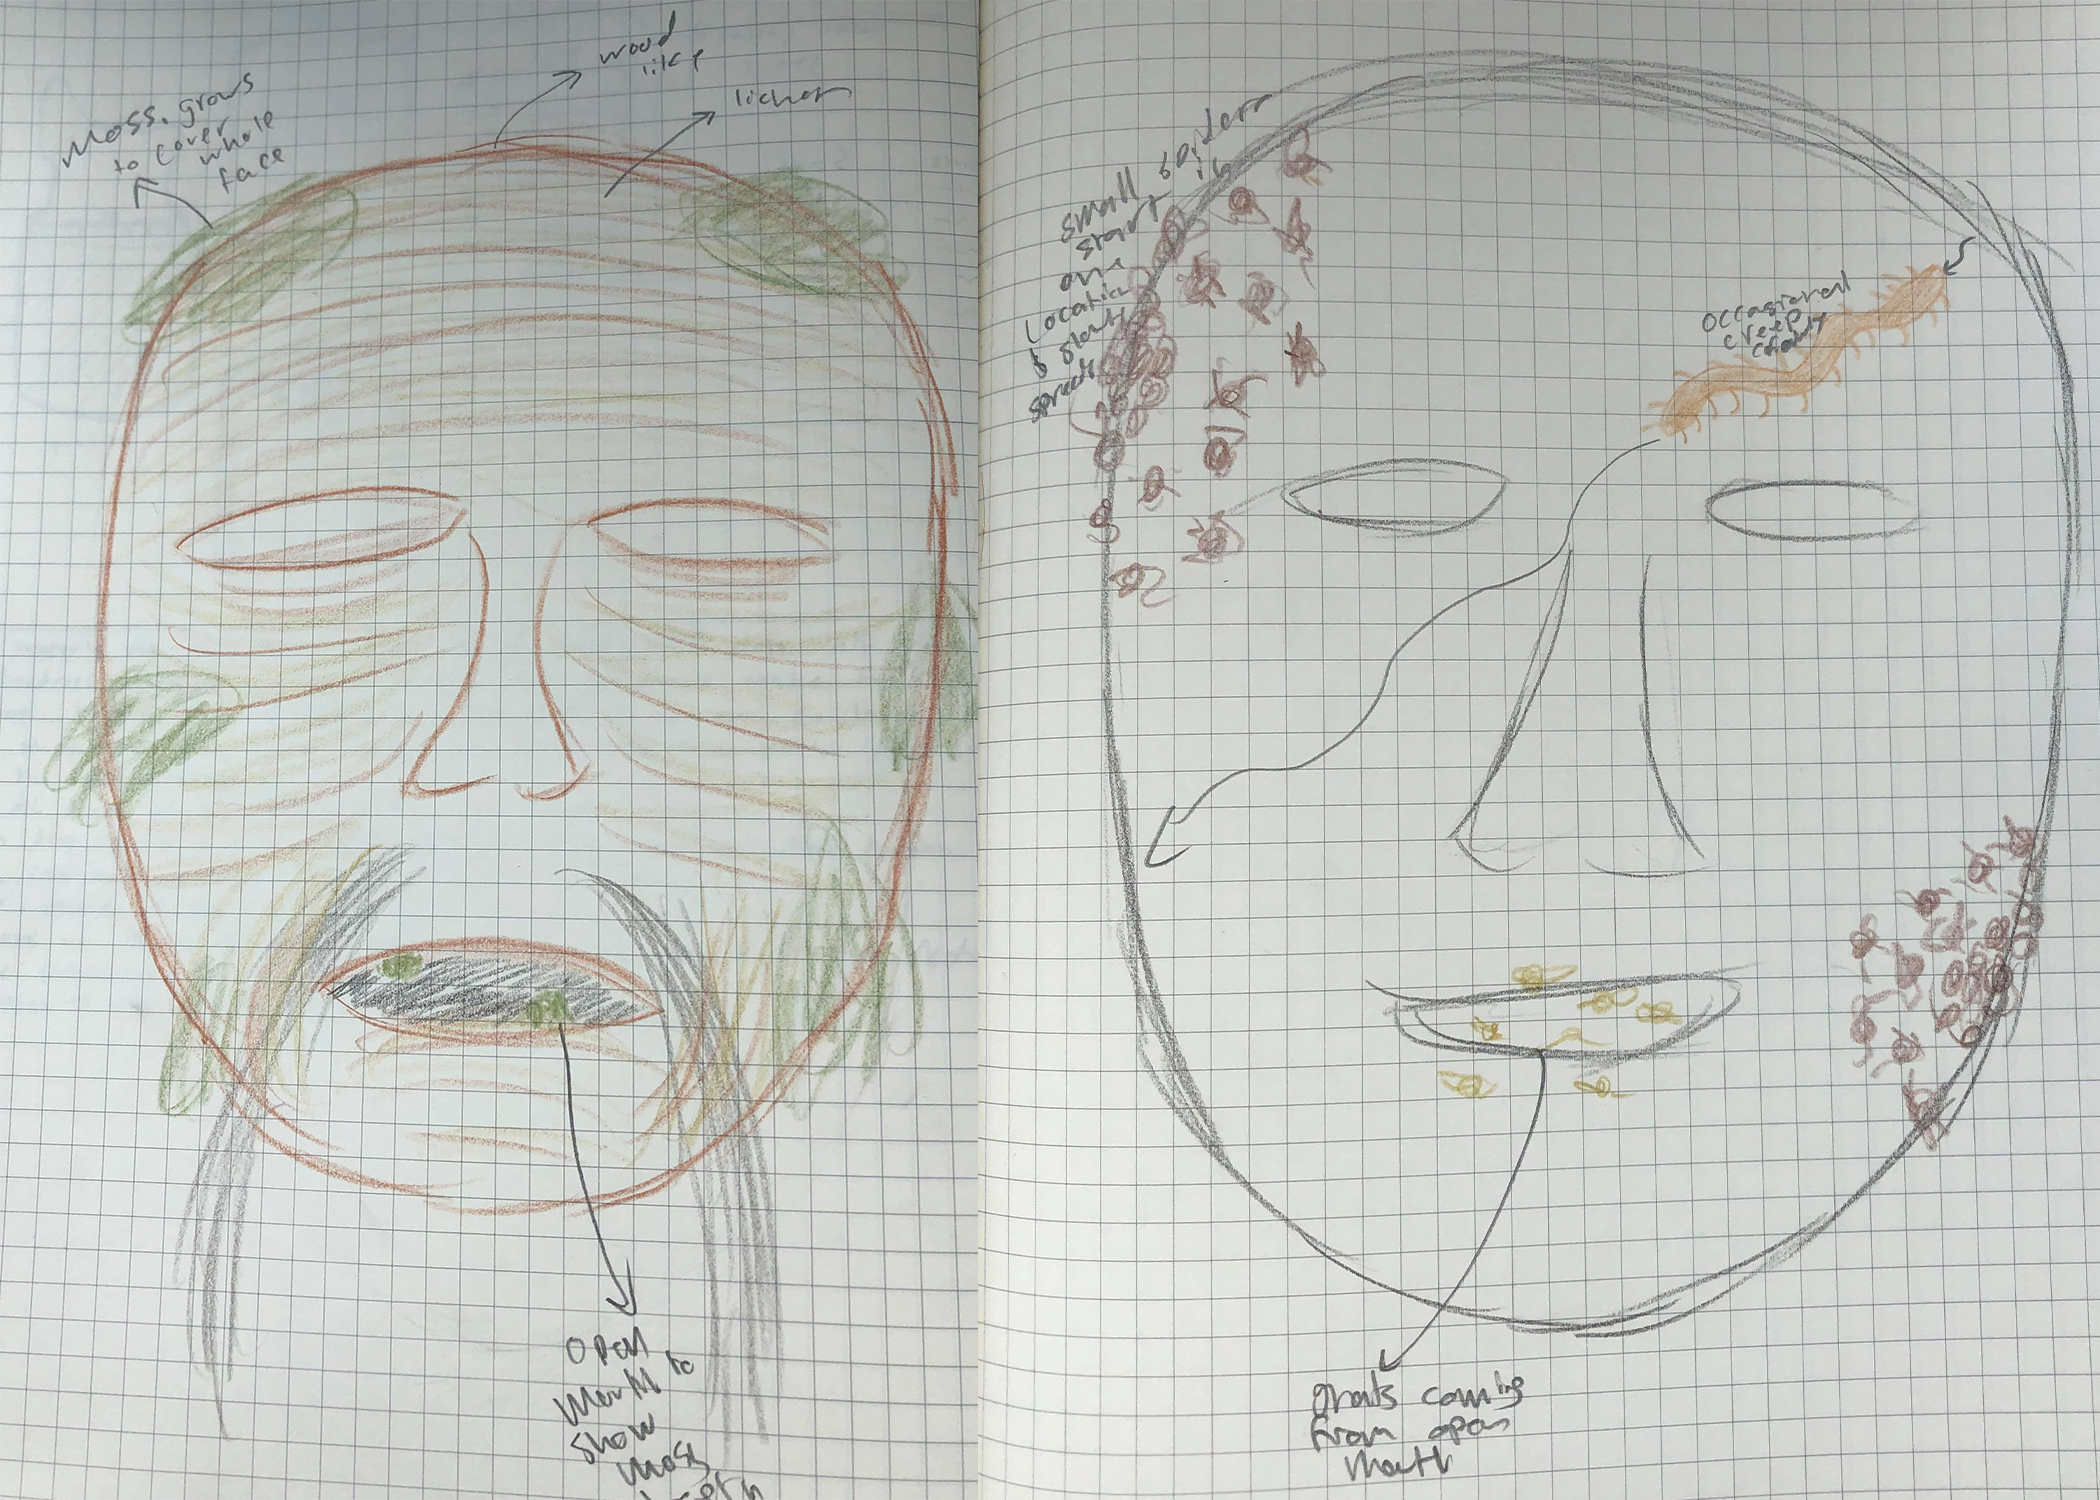 Moss. grows
to cover
whole
face
wood
like
lichen
open
mouth to
show
moss
small spiders
start in
one
location
& slowly
spreads
occasional
creepy
crawly
gnats coming
from open
mouth